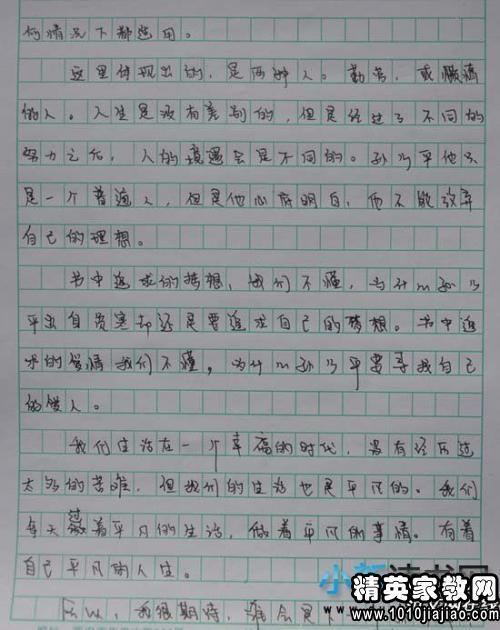 何情况下都适用。
这里体现出的，是两种人。勤劳，或懒惰
的人。人生是没有差别的，但是经过了不同的
努力之后，人的境遇会是不同的。孙少平他只
是一个普通人，但是他心底明白，他不能放弃
自己的理想。
书中追求的梦想，我们不懂，为什么孙少
平出自贫寒却还是要追求自己的梦想。书中追
求的爱情我们不懂，为什么孙少平要寻找自己
的爱人。
我们生活在一个幸福的时代，没有经历过
太多的苦难，但我们的生活也是平凡的。我们
每天 着平凡的生活，做着平凡的事情。有着
自己平凡的人生。
所以，我很期待，谁会是下一
精英家教网
www.1010jiajiao.com